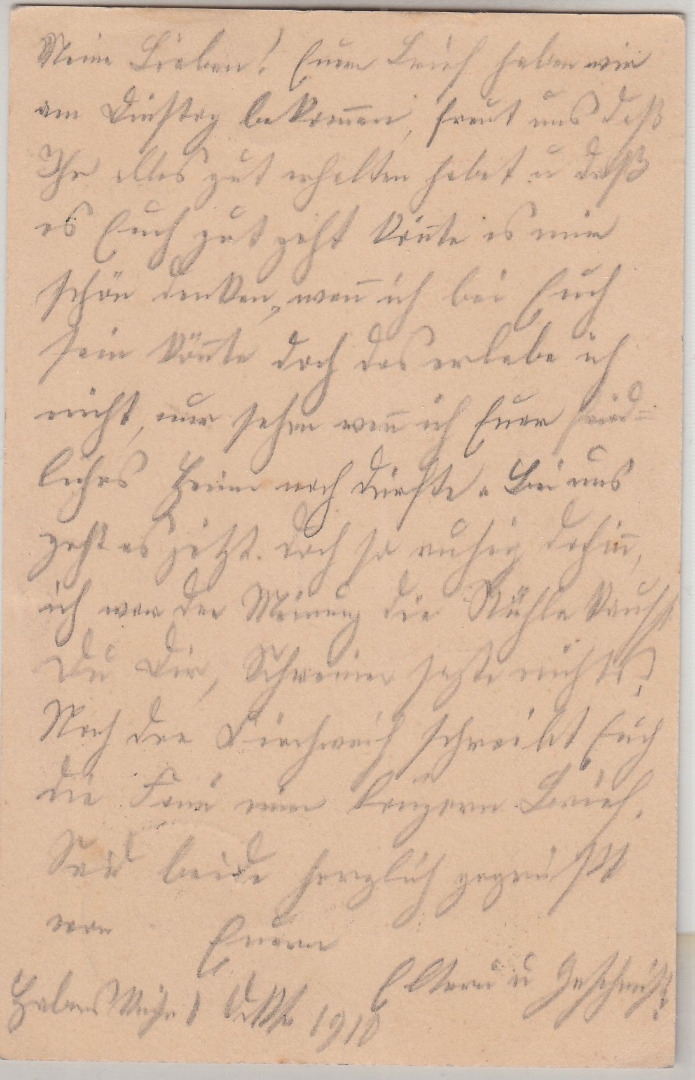 Meine Lieben! Euern Brief haben wir
am Dinstag bekommen, freut uns daß
Ihr alles gut erhalten habet u daß
es Euch gut geht könnte es mir
schön denken, wenn ich bei Euch
sein könnte doch das erlebe ich
nicht, nur sehen wenn ich Euer fried=
liches Heim noch dürfte. Bei uns
geht es jetzt doch so ruhig dahin,
ich war der Meinung die Mühle kaufst
Du Dir, Schreiner sagte nichts.
Nach der Kirchweih schreibt Euch
die Fani einen längern Brief.
Seid beide herzlich gegrüßt
von Euern
Eltern u Geschwist.
1910